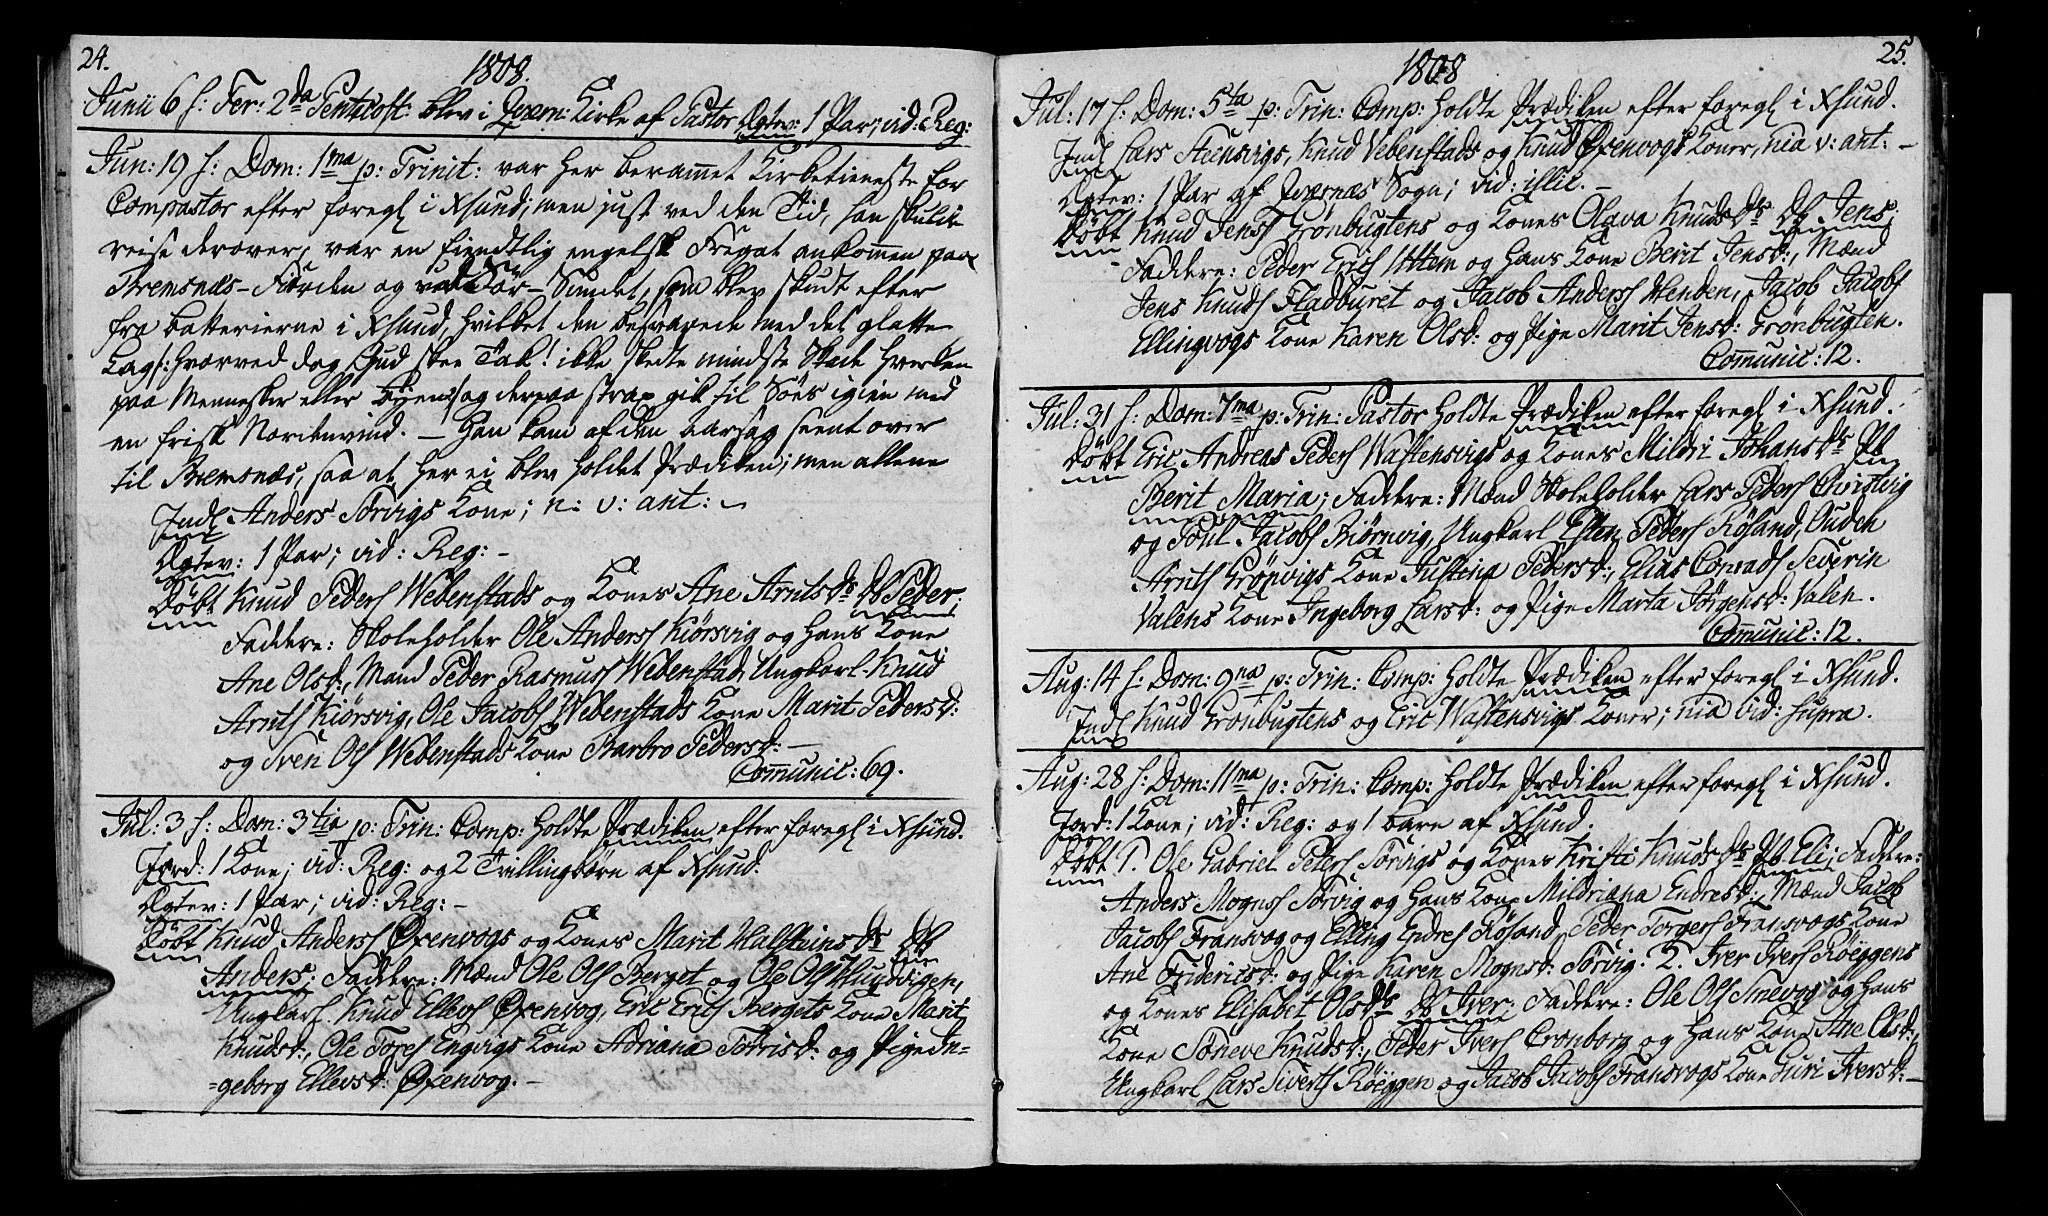 24.
1808.
Junii 6 h: Fer: 2da Pentecost: blev i Qværn: Kirke af Pastor Egtev: 1 Par; vid: Reg:
Jun: 19 h: Dom: 1ma p: Trinit: var her berammet Kirketieneste for
Compastor efter foregl i Xsund; men just ved den Tid, han skulde
reise derover, var en fiendtlig engelsk Fregat ankommen paa
Bremsnæs-Fiorden og ved Sör-Sundet, som blev skudt efter
fra batterierne i Xsund, hvilket den besvarede med det glatte
Lag /: hvorved dog Gud skee Tak! ikke skedte mindste Skade hverken
paa Mennesker eller Byen :/ og derpaa strax gik til Söes igien med
en frisk Nordenvind. — Han kom af den aarsag seent over
til Bremsnæs, saa at her ei blev holdet Prædiken; men allene
Indl Anders Sörvigs Kone; n: v: ant: —
Egtev: 1 Par; vid: Reg: —
Döbt Knud Peders Webenstads og Kones Ane Arntsds Db Peder;
Faddere: Skoleholder Ole Anderss Kiörsvig og hans Kone
Ane Olsd:, Mand Peder Rasmuss Webenstad, Ungkarl Knud
Arnts Kiörsvig, Ole Jacobs Webenstads Kone Marit Pedersd:
og Sven Ols Webenstads Kone Barbro Pedersd: —
Communic: 69.
Jul: 3 h: Dom: 3tia p: Trin: Comp: holdte Prædiken efter foregl i Xsund.
Jord: 1 Kone; vid: Reg: og 2 Tvillingbörn af Xsund.
Egtev: 1 Par; vid: Reg: —
Döbt Knud Anderss Oxenvogs og Kones Marit Halsteinsds Db
Anders; Faddere: Mænd Ole Ols Berget og Ole Ols Hundvigen,
Ungkarl Knud Ellevs Oxenvog, Eric Erics Bergets Kone Marit
Knudsd:, Ole Tores Engvigs Kone Adriana Torrisd: og Pige In=
=geborg Ellevsd: Oxenvog. —
25.
1808
Jul: 17 h: Dom: 5ta p: Trin: Comp: holdte Prædiken efter foregl i Xsund.
Indl Lars Steensvigs, Knud Vebenstads og Knud Oxenvogs Koner, nia v: ant: —
Egtev: 1 Par af Qværnæs Sogn; vid: illic. —
Döbt Knud Jenss Grönbugtens og Kones Olava Knudsds Db Jens;
Faddere: Peder Erics Uttem og hans Kone Berit Jensd:, Mænd
Jens Knuds Fladburet og Jacob Anderss Wenden, Jacob Jacobs
Ellingvogs Kone Karen Olsd: og Pige Marit Jensd: Grönbugten.
Communic: 12.
Jul: 31 h: Dom: 7ma p: Trin: Pastor holdte Prædiken efter foregl i Xsund.
Döbt Eric Andreas Peders Wastensvigs og Kones Mildri Johansds Pb
Berit Maria; Faddere: Mænd Skoleholder Lars Peders Christvig
og Poul Jacobs Biörnvig, Ungkarl Esten Peders Rösand, Ouden
Arnts Grönvigs Kone Justina Pedersd:, Elias Conrads Severin
Valens Kone Ingeborg Larsd: og Pige Marta Jörgensd: Valen.
Communic: 12.
Aug: 14 h: Dom: 9na p: Trin: Comp: holdte Prædiken efter foregl i Xsund.
Indl Knud Grönbugtens og Eric Wastensvigs Koner; nia vid: supra.
Aug: 28 h: Dom: 11ma p: Trin: Comp: holdte Prædiken efter foregl i Xsund.
Jord: 1 Kone; vid: Reg: og 1 barn af Xsund.
Döbt 1. Ole Gabriel Peders Sörvigs og Kones Kristi Knudsds Pb Eli; Faddere:
Anders Mognss Sörvig og hans Kone Mildriana Endresd:, Mænd Jacob
Jacobs Fransvog og Elling Endres Rösand, Peder Torgers Fransvogs Kone
Ane Fridericsd: og Pige Karen Mognsd: Sörvig. 2. Iver Ivers Röeggens
og Kones Elisabet Olsds Db Iver; Faddere: Ole Ols Snevog og hans
Kone Söneve Knudsd:, Peder Ivers Cronborg og hans Kone Ane Olsd:,
Ungkarl Lars Siverts Röeggen og Jacob Jacobs Fransvogs Kone Guri Iversd: —